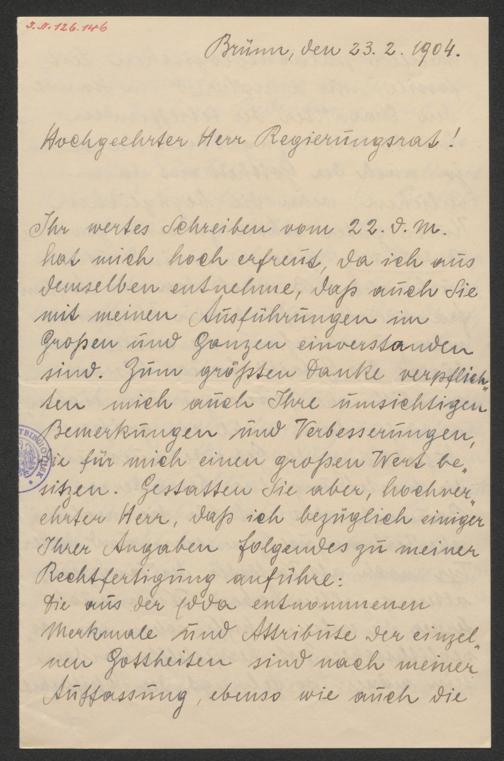 I.N. 126.146
Brünn, den 23. 2. 1904.
Hochgeehrter Herr Regierungsrat!
Ihr wertes Schreiben vom 22. d. M.
hat mich hoch erfreut, da ich aus
demselben entnehme, daß auch Sie
mit meinen Ausführungen im
Großen und Ganzen einverstanden
sind. Zum größten Danke verpflich-
ten mich auch Ihre umsichtigen
Bemerkungen und Verbesserungen,
die für mich einen großen Wert be-
sitzen. Gestatten Sie aber, hochver-
ehrter Herr, daß ich bezüglich einiger
Ihrer Angaben folgendes zu meiner
Rechtfertigung anführe:
Die aus der Edda entnommenen
Merkmale und Attribute der einzel-
nen Gottheiten sind nach meiner
Auffassung, ebenso wie auch die